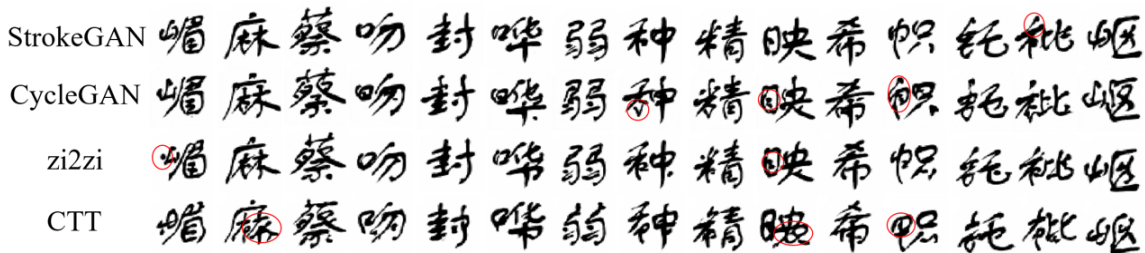 StrokeGAN 嵋 麻 蔡 吻 封 哗 弱 种 精 映 希 帜 秏 枇 岖
CycleGAN 嵋 麻 蔡 吻 封 哗 弱 种 精 映 希 帜 秏 枇 岖
zi2zi 嵋 麻 蔡 吻 封 哗 弱 种 精 映 希 帜 秏 枇 岖
CTT 嵋 麻 蔡 吻 封 哗 弱 种 精 映 希 帜 秏 枇 岖